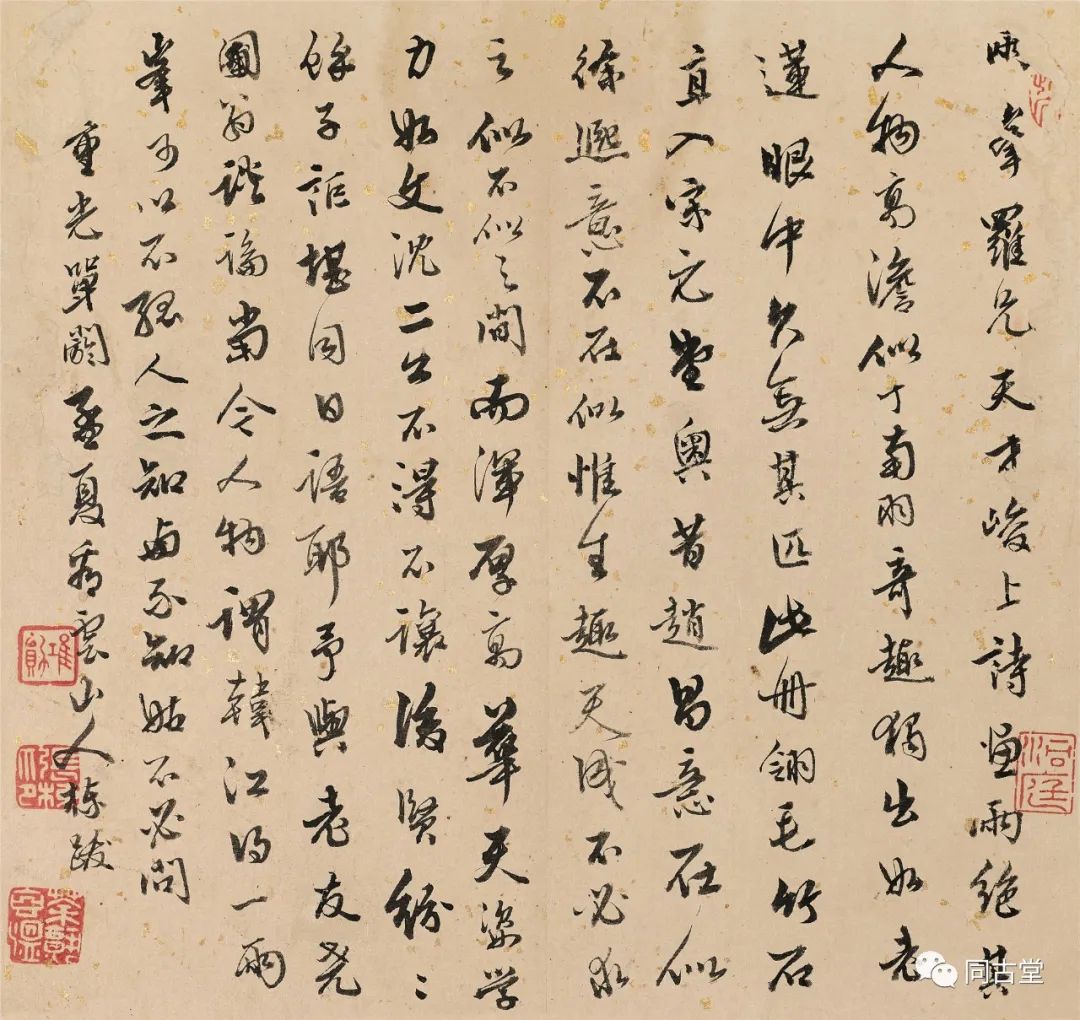 兩峯羅兄天才峻上詩畫兩絕其
人物高澹似丁南羽奇趣獨出如老
蓮眼中久無其匹此冊翎毛竹石
直入宋元堂奧昔趙昌意在似
徐熙意不在似惟生趣天成不必求
之似不似之間而渾厚高華天姿學
力如文沈二公不得不讓後賢紛〻
餘子詎堪同日語耶予與老友堯
圃翁談論當今人物謂韓江得一兩
峯可以不孤人之知不知姑不必問
重光單閼孟夏看雲山人棟跋
同古堂